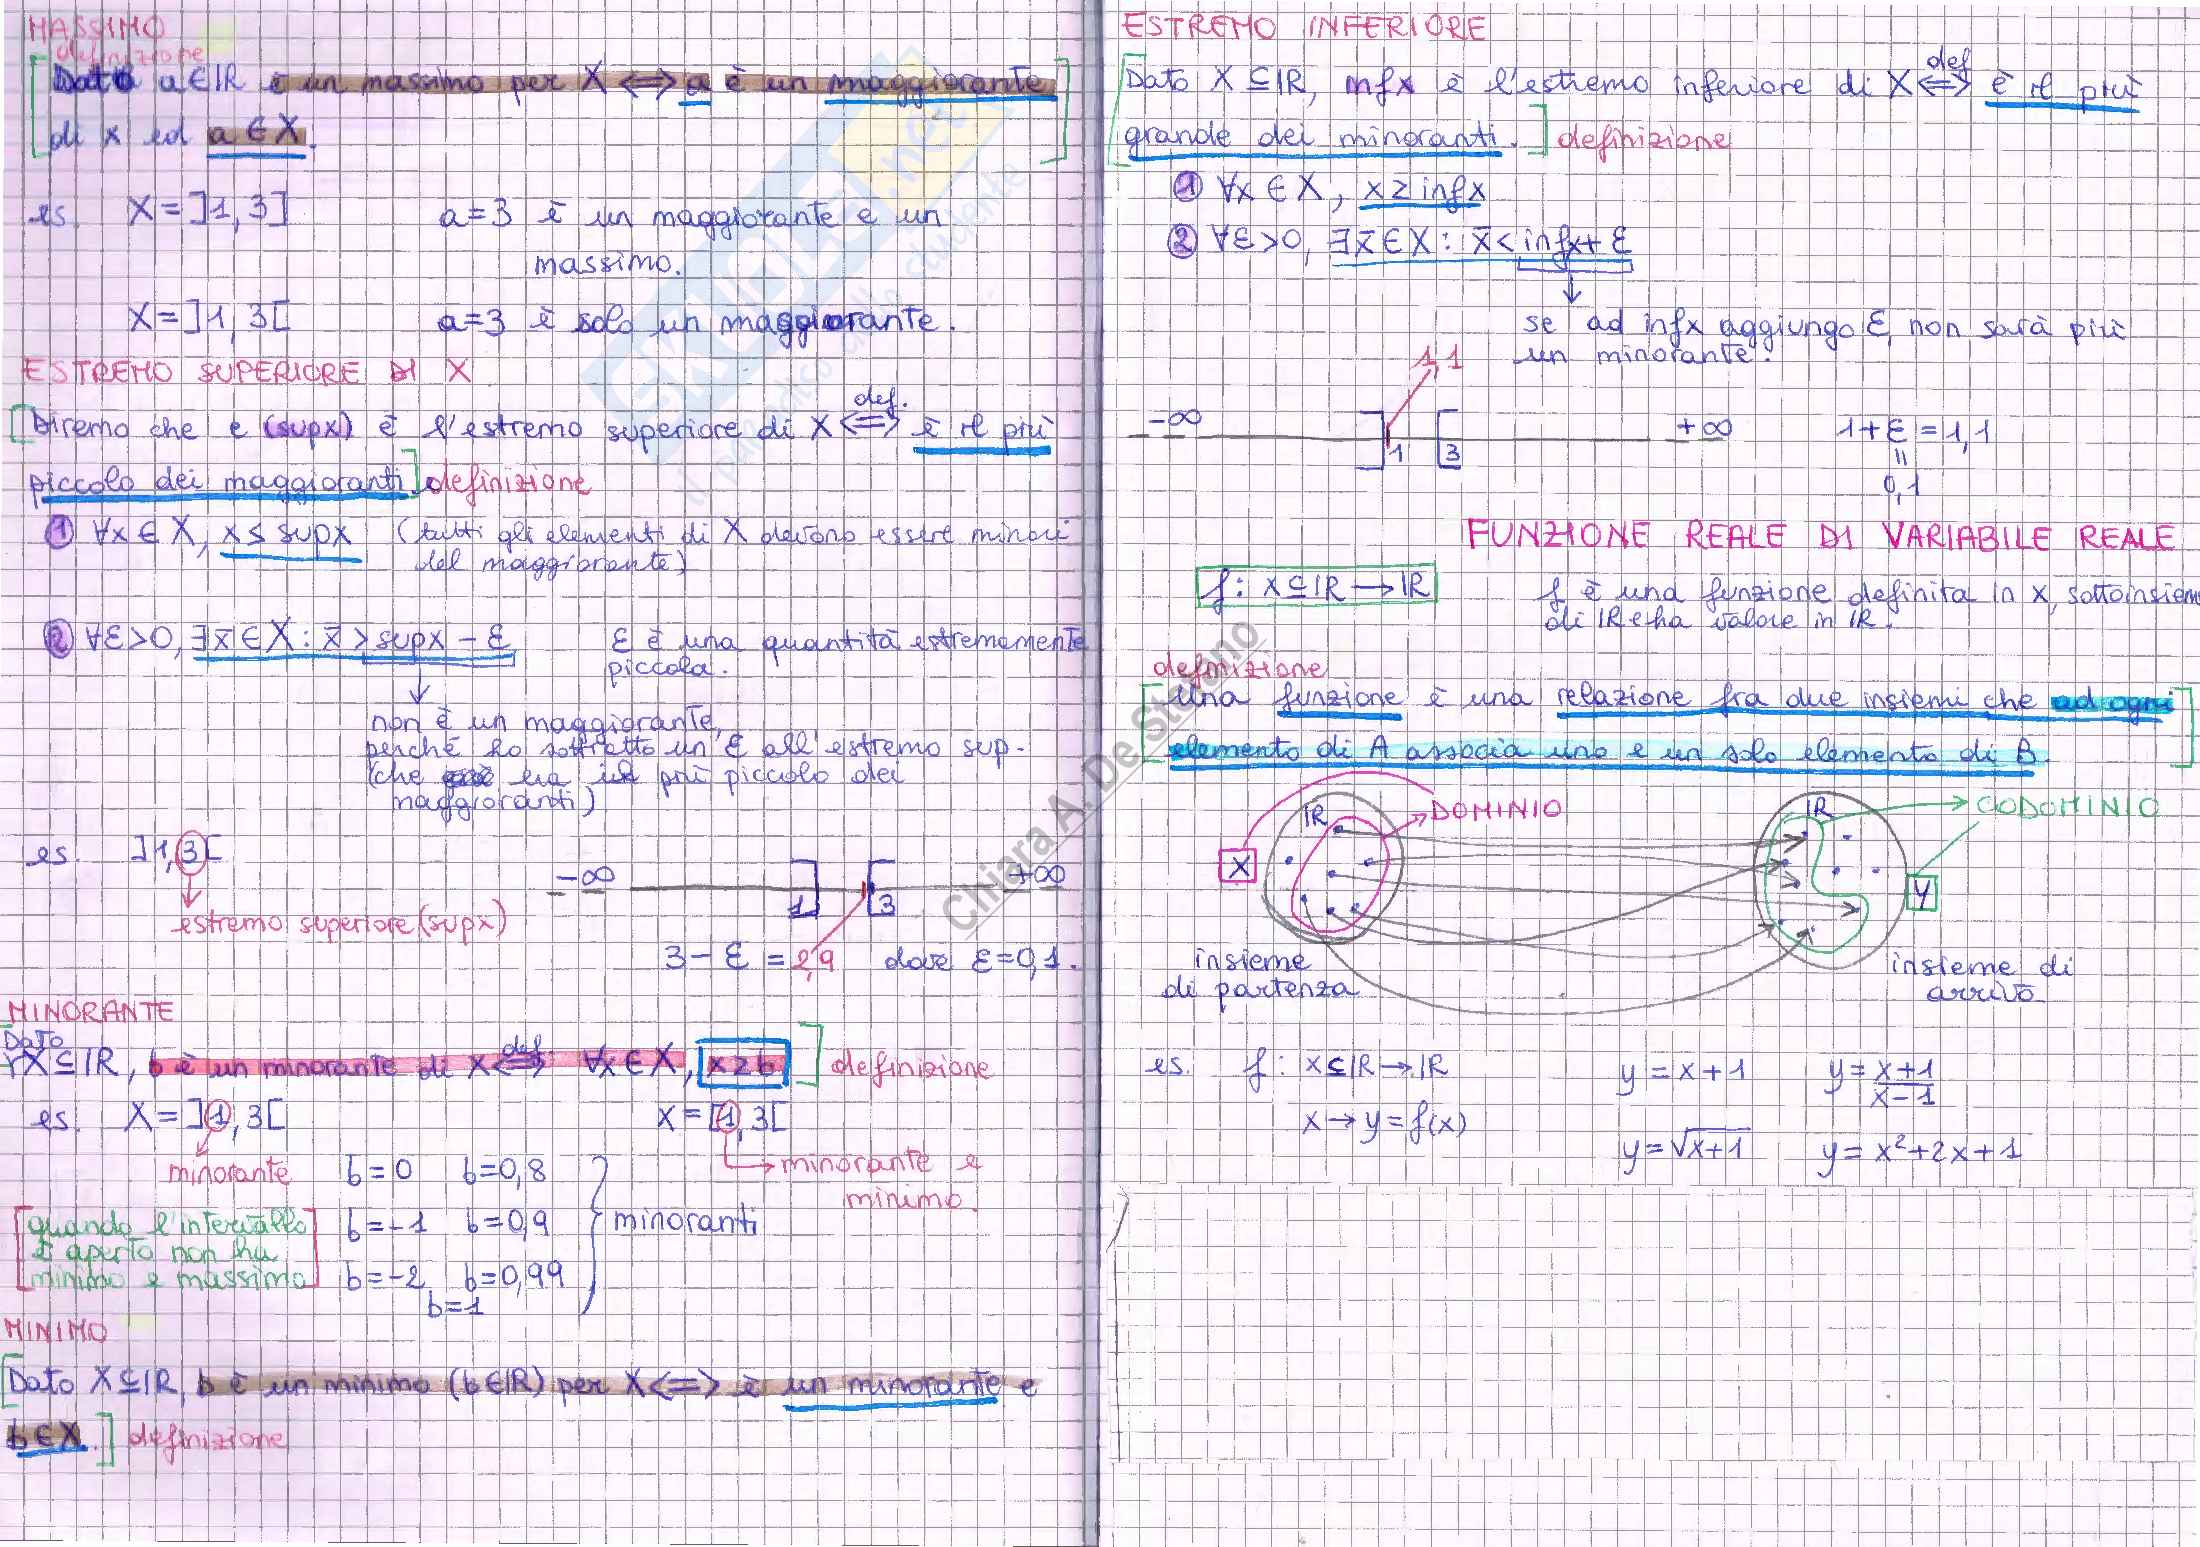 MASSIMO
definizione
Dato a∈ℝ è un massimo per X ⟺ a è un maggiorante
di x ed a∈X.
es. X=]1,3] a=3 è un maggiorante e un
massimo.
X=]1,3[ a=3 è solo un maggiorante.
ESTREMO SUPERIORE DI X
Diremo che e (supx) è l'estremo superiore di X ⟺ def. è il più
piccolo dei maggioranti. definizione
① ∀x∈X, x≤supx (tutti gli elementi di X devono essere minori
del maggiorante)
② ∀ε>0, ∃x̄∈X: x̄>supx-ε ε è una quantità estremamente
piccola.
non è un maggiorante,
perché ho sottratto un ε all'estremo sup.
(che era il più piccolo dei
maggioranti)
es. ]1,3[
-∞ 1 3 +∞
estremo superiore (supx)
3-ε=2,9 dove ε=0,1.
MINORANTE
Dato
X⊆ℝ, b è un minorante di X ⟺ def. ∀x∈X, x≥b definizione
es. X=]1,3[ X=[1,3[
minorante b=0 b=0,8 minorante e
minimo.
quando l'intervallo b=-1 b=0,9 minoranti
è aperto non ha
minimo e massimo b=-2 b=0,99
b=1
MINIMO
Dato X⊆ℝ, b è un minimo (b∈ℝ) per X ⟺ è un minorante e
b∈X. definizione
ESTREMO INFERIORE
Dato X⊆ℝ, infx è l'estremo inferiore di X ⟺ def è il più
grande dei minoranti. definizione
① ∀x∈X, x≥infx
② ∀ε>0, ∃x̄∈X: x̄<infx+ε
se ad infx aggiungo ε, non sarà più
un minorante.
1,1
-∞ 1 3 +∞ 1+ε=1,1
=
0,1
FUNZIONE REALE DI VARIABILE REALE
f: X⊆ℝ→ℝ f è una funzione definita in x, sottoinsieme
di ℝ e ha valore in ℝ.
definizione
Una funzione è una relazione fra due insiemi che ad ogni
elemento di A associa uno e un solo elemento di B.
ℝ DOMINIO ℝ CODOMINIO
X Y
insieme
di partenza
insieme di
arrivo
es. f: X⊆ℝ→ℝ y=x+1 y=x+1/x-1
x→y=f(x) y=√x+1 y=x²+2x+1
SKUOLA.net
il paradiso dello studente
Chiara A. De Stefano